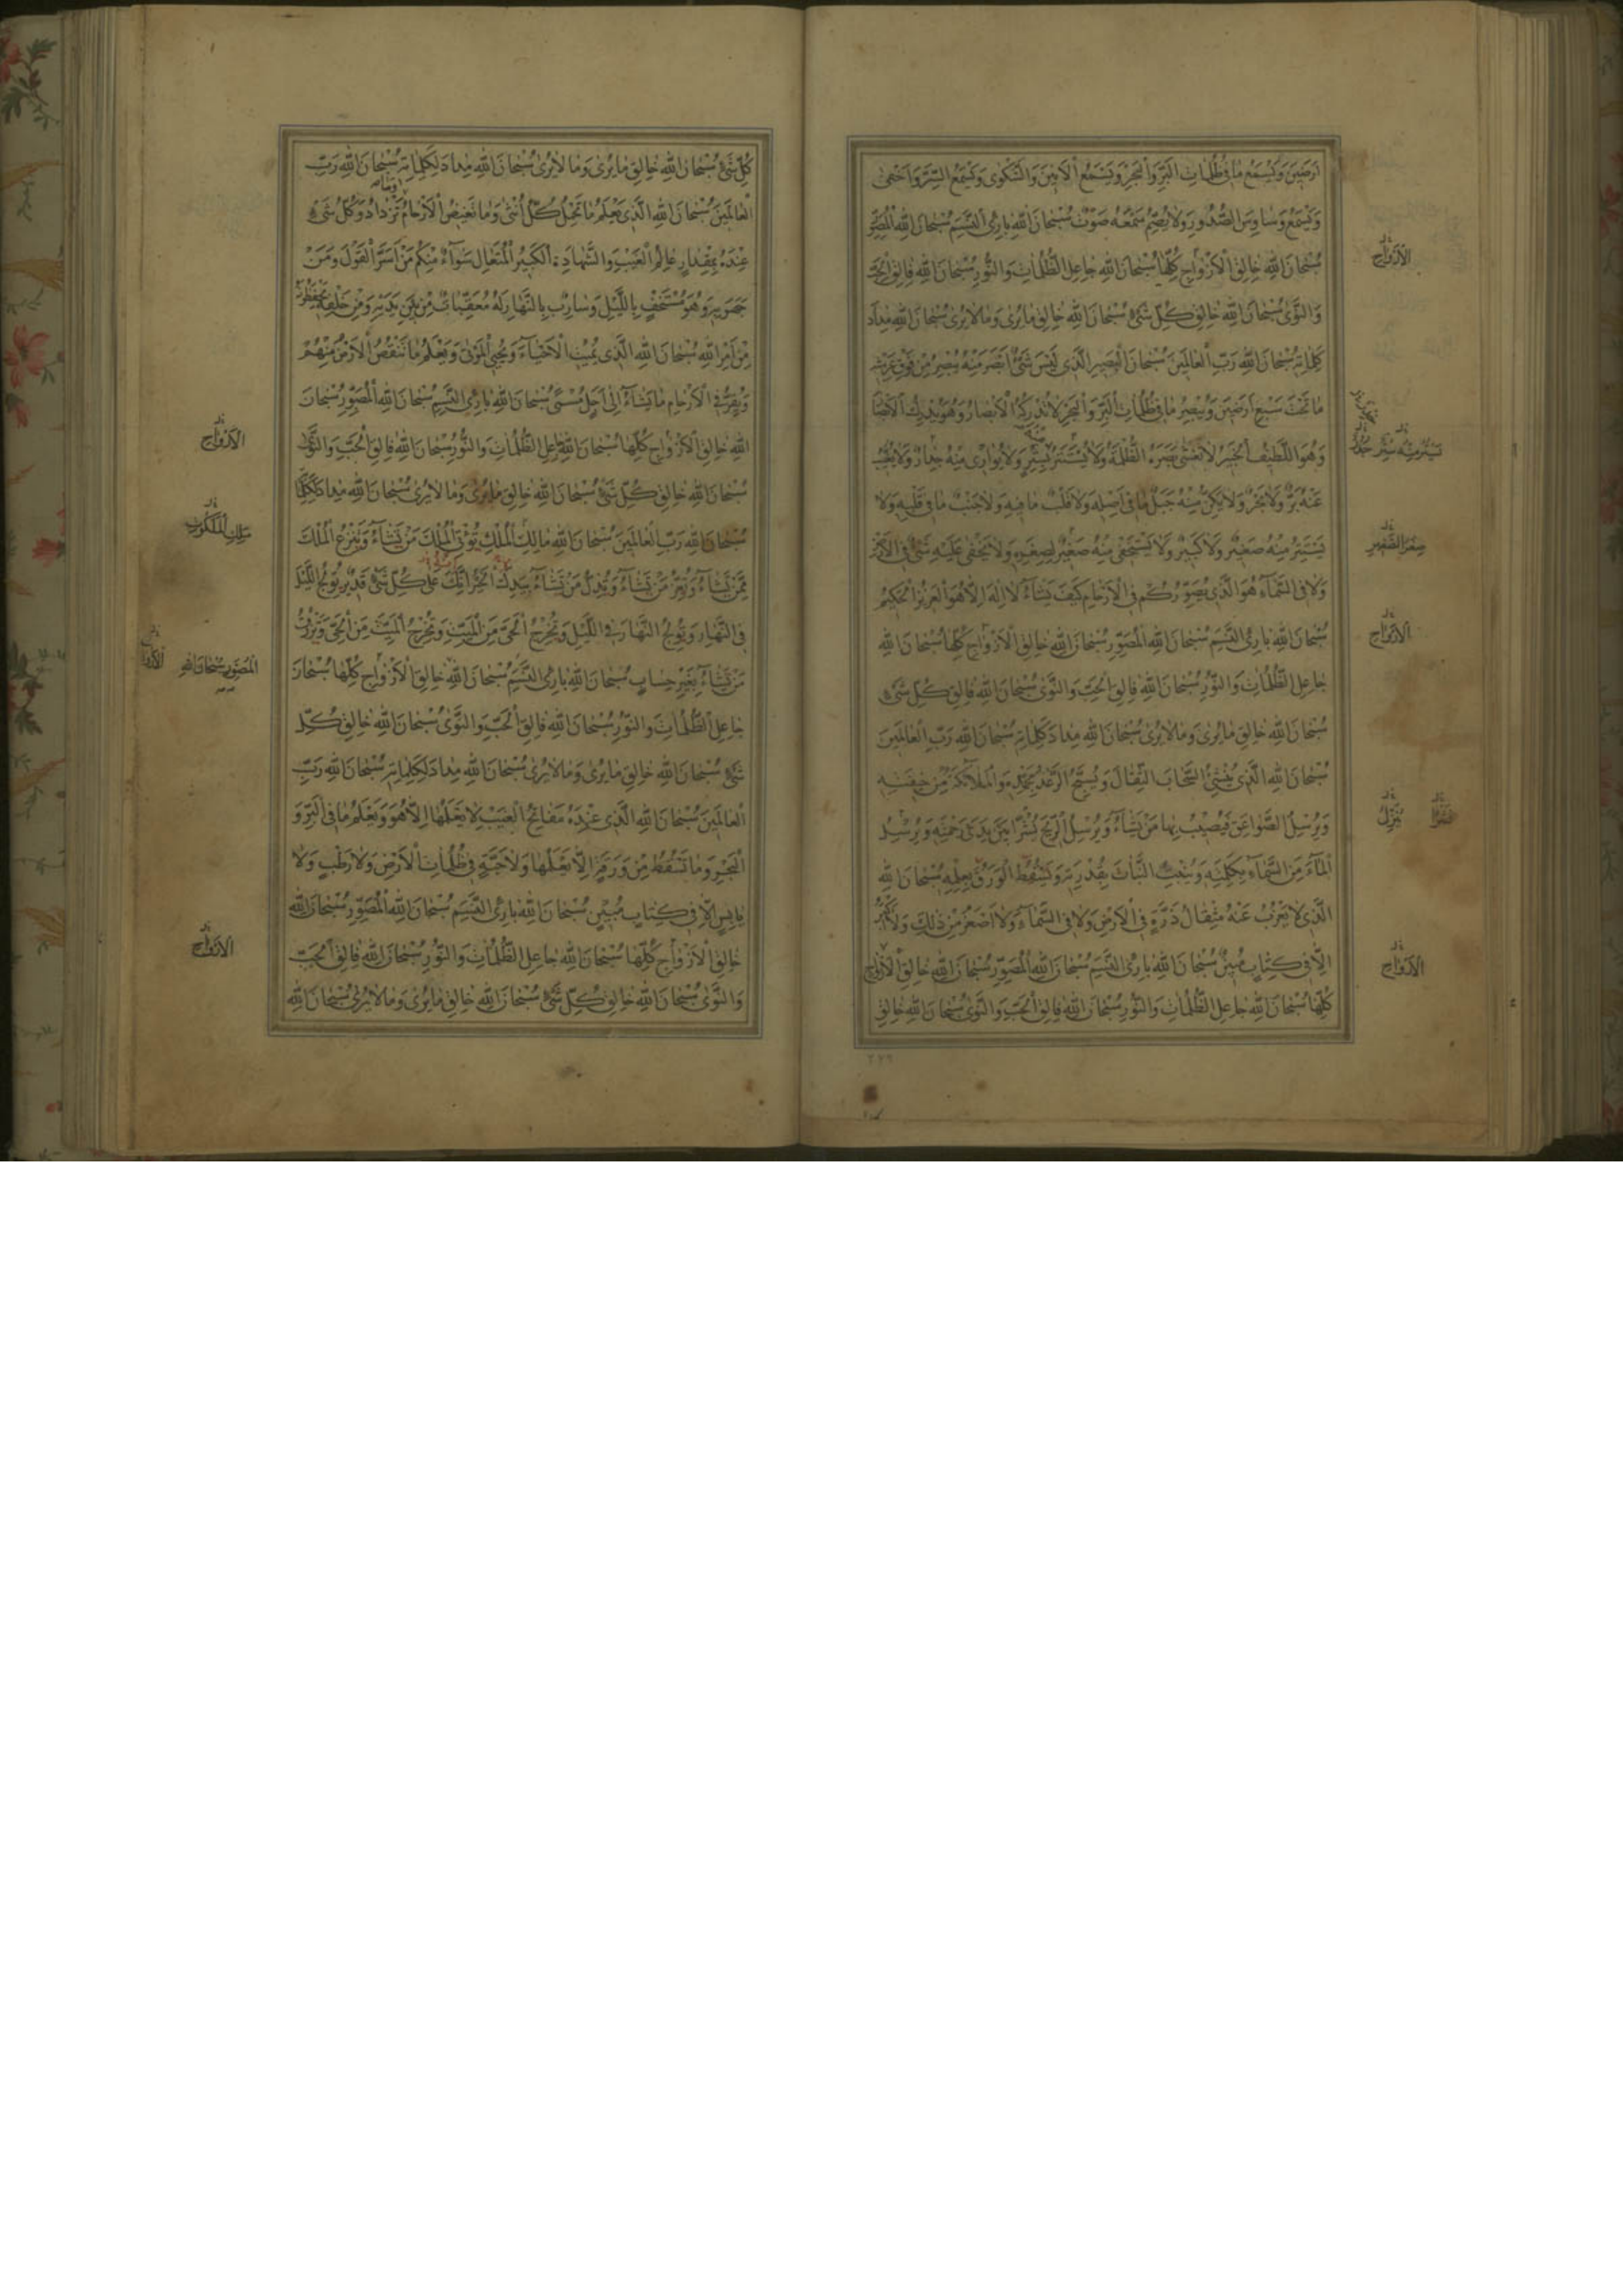 اَرَضينَ وَيَسْمَعُ ما في ظُلُماتِ الْبَرِّ وَالْبَحْرِ وَيَسْمَعُ الْاَنينَ وَالشَّكْوى وَيَسْمَعُ السِّرَّ وَاَخْفى
وَيَسْمَعُ وَساوِسَ الصُّدُورِ وَلا يُصِمُّ سَمْعَهُ صَوْتٌ سُبْحانَ اللهِ بارِئِ النَّسَمِ سُبْحانَ اللهِ الْمُصَوِّرِ
سُبْحانَ اللهِ خالِقِ الْاَزْواجِ كُلِّها سُبْحانَ اللهِ جاعِلِ الظُّلُماتِ وَالنُّورِ سُبْحانَ اللهِ فالِقِ الْحَبِّ
وَالنَّوى سُبْحانَ اللهِ خالِقِ كُلِّ شَيْءٍ سُبْحانَ اللهِ خالِقِ ما يُرى وَما لا يُرى سُبْحانَ اللهِ مِدادَ
كَلِماتِهِ سُبْحانَ اللهِ رَبِّ الْعالَمينَ سُبْحانَ الْبَصيرِ الَّذي لَيْسَ شَيْءٌ اَبْصَرَ مِنْهُ يُبْصِرُ مِنْ فَوْقِ عَرْشِهِ
ما تَحْتَ سَبْعِ اَرَضينَ وَيُبْصِرُ ما في ظُلُماتِ الْبَرِّ وَالْبَحْرِ لا تُدْرِكُهُ الْاَبْصارُ وَهُوَ يُدْرِكُ الْاَبْصارَ
وَهُوَ اللَّطيفُ الْخَبيرُ لا تَغْشى بَصَرَهُ الظُّلْمَةُ وَلا يُسْتَتَرُ مِنْهُ بِسِتْرٍ وَلا يُواري مِنْهُ جِدارٌ وَلا يَغيبُ
عَنْهُ بَرٌّ وَلا بَحْرٌ وَلا يَكِنُّ مِنْهُ جَبَلٌ ما في اَصْلِهِ وَلا قَلْبٌ ما فيهِ وَلا جَنْبٌ ما في قَلْبِهِ وَلا
يَسْتَتِرُ مِنْهُ صَغيرٌ وَلا كَبيرٌ وَلا يَسْتَخْفي مِنْهُ صَغيرٌ لِصِغَرِهِ وَلا يَخْفى عَلَيْهِ شَيْءٌ فِي الْاَرْضِ
وَلا فِي السَّماءِ هُوَ الَّذي يُصَوِّرُكُمْ فِي الْاَرْحامِ كَيْفَ يَشاءُ لا اِلهَ اِلّا هُوَ الْعَزيزُ الْحَكيمُ
سُبْحانَ اللهِ بارِئِ النَّسَمِ سُبْحانَ اللهِ الْمُصَوِّرِ سُبْحانَ اللهِ خالِقِ الْاَزْواجِ كُلِّها سُبْحانَ اللهِ
جاعِلِ الظُّلُماتِ وَالنُّورِ سُبْحانَ اللهِ فالِقِ الْحَبِّ وَالنَّوى سُبْحانَ اللهِ خالِقِ كُلِّ شَيْءٍ
سُبْحانَ اللهِ خالِقِ ما يُرى وَما لا يُرى سُبْحانَ اللهِ مِدادَ كَلِماتِهِ سُبْحانَ اللهِ رَبِّ الْعالَمينَ
سُبْحانَ اللهِ الَّذي يُنْشِئُ السَّحابَ الثِّقالَ وَيُسَبِّحُ الرَّعْدُ بِحَمْدِهِ وَالْمَلائِكَةُ مِنْ خيفَتِهِ
وَيُرْسِلُ الصَّواعِقَ فَيُصيبُ بِها مَنْ يَشاءُ وَيُرْسِلُ الرِّيحَ نُشْرًا بَيْنَ يَدَيْ رَحْمَتِهِ وَيُرْسِلُ
الْماءَ مِنَ السَّماءِ بِكَلِمَتِهِ وَيُنْبِتُ النَّباتَ بِقُدْرَتِهِ وَيَسْقُطُ الْوَرَقُ بِعِلْمِهِ سُبْحانَ اللهِ
الَّذي لا يَعْزُبُ عَنْهُ مِثْقالُ ذَرَّةٍ فِي الْاَرْضِ وَلا فِي السَّماءِ وَلا اَصْغَرُ مِنْ ذلِكَ وَلا اَكْبَرُ
اِلّا في كِتابٍ مُبينٍ سُبْحانَ اللهِ بارِئِ النَّسَمِ سُبْحانَ اللهِ الْمُصَوِّرِ سُبْحانَ اللهِ خالِقِ الْاَزْواجِ
كُلِّها سُبْحانَ اللهِ جاعِلِ الظُّلُماتِ وَالنُّورِ سُبْحانَ اللهِ فالِقِ الْحَبِّ وَالنَّوى سُبْحانَ اللهِ خالِقِ
الْاَزْواجِ
الْاَزْواجِ
يُنَزِّلُ
الْاَزْواجِ
٢٢٩
كُلِّ شَيْءٍ سُبْحانَ اللهِ خالِقِ ما يُرى وَما لا يُرى سُبْحانَ اللهِ مِدادَ كَلِماتِهِ سُبْحانَ اللهِ رَبِّ
الْعالَمينَ سُبْحانَ اللهِ الَّذي يَعْلَمُ ما تَحْمِلُ كُلُّ اُنْثى وَما تَغيضُ الْاَرْحامُ وَما تَزْدادُ وَكُلُّ شَيْءٍ
عِنْدَهُ بِمِقْدارٍ عالِمُ الْغَيْبِ وَالشَّهادَةِ الْكَبيرُ الْمُتَعالِ سَواءٌ مِنْكُمْ مَنْ اَسَرَّ الْقَوْلَ وَمَنْ
جَهَرَ بِهِ وَهُوَ مُسْتَخْفٍ بِاللَّيْلِ وَسارِبٌ بِالنَّهارِ لَهُ مُعَقِّباتٌ مِنْ بَيْنِ يَدَيْهِ وَمِنْ خَلْفِهِ يَحْفَظُونَهُ
مِنْ اَمْرِ اللهِ سُبْحانَ اللهِ الَّذي يُميتُ الْاَحْياءَ وَيُحْيِي الْمَوْتى وَيَعْلَمُ ما تَنْقُصُ الْاَرْضُ مِنْهُمْ
وَيُقِرُّ فِي الْاَرْحامِ ما يَشاءُ اِلى اَجَلٍ مُسَمًّى سُبْحانَ اللهِ بارِئِ النَّسَمِ سُبْحانَ اللهِ الْمُصَوِّرِ سُبْحانَ
اللهِ خالِقِ الْاَزْواجِ كُلِّها سُبْحانَ اللهِ جاعِلِ الظُّلُماتِ وَالنُّورِ سُبْحانَ اللهِ فالِقِ الْحَبِّ وَالنَّوى
سُبْحانَ اللهِ خالِقِ كُلِّ شَيْءٍ سُبْحانَ اللهِ خالِقِ ما يُرى وَما لا يُرى سُبْحانَ اللهِ مِدادَ كَلِماتِهِ
سُبْحانَ اللهِ رَبِّ الْعالَمينَ سُبْحانَ اللهِ مالِكِ الْمُلْكِ تُؤْتِي الْمُلْكَ مَنْ تَشاءُ وَتَنْزِعُ الْمُلْكَ
مِمَّنْ تَشاءُ وَتُعِزُّ مَنْ تَشاءُ وَتُذِلُّ مَنْ تَشاءُ بِيَدِكَ الْخَيْرُ اِنَّكَ عَلى كُلِّ شَيْءٍ قَديرٌ تُولِجُ اللَّيْلَ
فِي النَّهارِ وَتُولِجُ النَّهارَ فِي اللَّيْلِ وَتُخْرِجُ الْحَيَّ مِنَ الْمَيِّتِ وَتُخْرِجُ الْمَيِّتَ مِنَ الْحَيِّ وَتَرْزُقُ
مَنْ تَشاءُ بِغَيْرِ حِسابٍ سُبْحانَ اللهِ بارِئِ النَّسَمِ سُبْحانَ اللهِ خالِقِ الْاَزْواجِ كُلِّها سُبْحانَ
جاعِلِ الظُّلُماتِ وَالنُّورِ سُبْحانَ اللهِ فالِقِ الْحَبِّ وَالنَّوى سُبْحانَ اللهِ خالِقِ كُلِّ
شَيْءٍ سُبْحانَ اللهِ خالِقِ ما يُرى وَما لا يُرى سُبْحانَ اللهِ مِدادَ كَلِماتِهِ سُبْحانَ اللهِ رَبِّ
الْعالَمينَ سُبْحانَ اللهِ الَّذي عِنْدَهُ مَفاتِحُ الْغَيْبِ لا يَعْلَمُها اِلّا هُوَ وَيَعْلَمُ ما فِي الْبَرِّ وَ
الْبَحْرِ وَما تَسْقُطُ مِنْ وَرَقَةٍ اِلّا يَعْلَمُها وَلا حَبَّةٍ في ظُلُماتِ الْاَرْضِ وَلا رَطْبٍ وَلا
يابِسٍ اِلّا في كِتابٍ مُبينٍ سُبْحانَ اللهِ بارِئِ النَّسَمِ سُبْحانَ اللهِ الْمُصَوِّرِ سُبْحانَ اللهِ
خالِقِ الْاَزْواجِ كُلِّها سُبْحانَ اللهِ جاعِلِ الظُّلُماتِ وَالنُّورِ سُبْحانَ اللهِ فالِقِ الْحَبِّ
وَالنَّوى سُبْحانَ اللهِ خالِقِ كُلِّ شَيْءٍ سُبْحانَ اللهِ خالِقِ ما يُرى وَما لا يُرى سُبْحانَ اللهِ
الْاَزْواجِ
الْمُصَوِّرِ سُبْحانَ اللهِ
الْاَزْواجِ